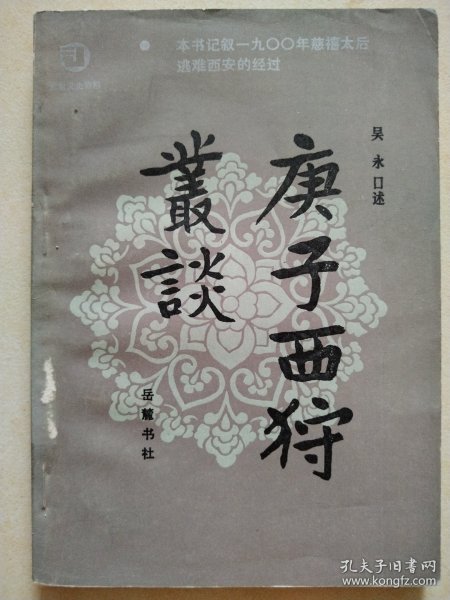 本书记叙一九〇〇年慈禧太后
逃难西安的经过
吴永口述
庚子西狩
叢談
岳麓书社
孔夫子旧书网
www.kongfz.com